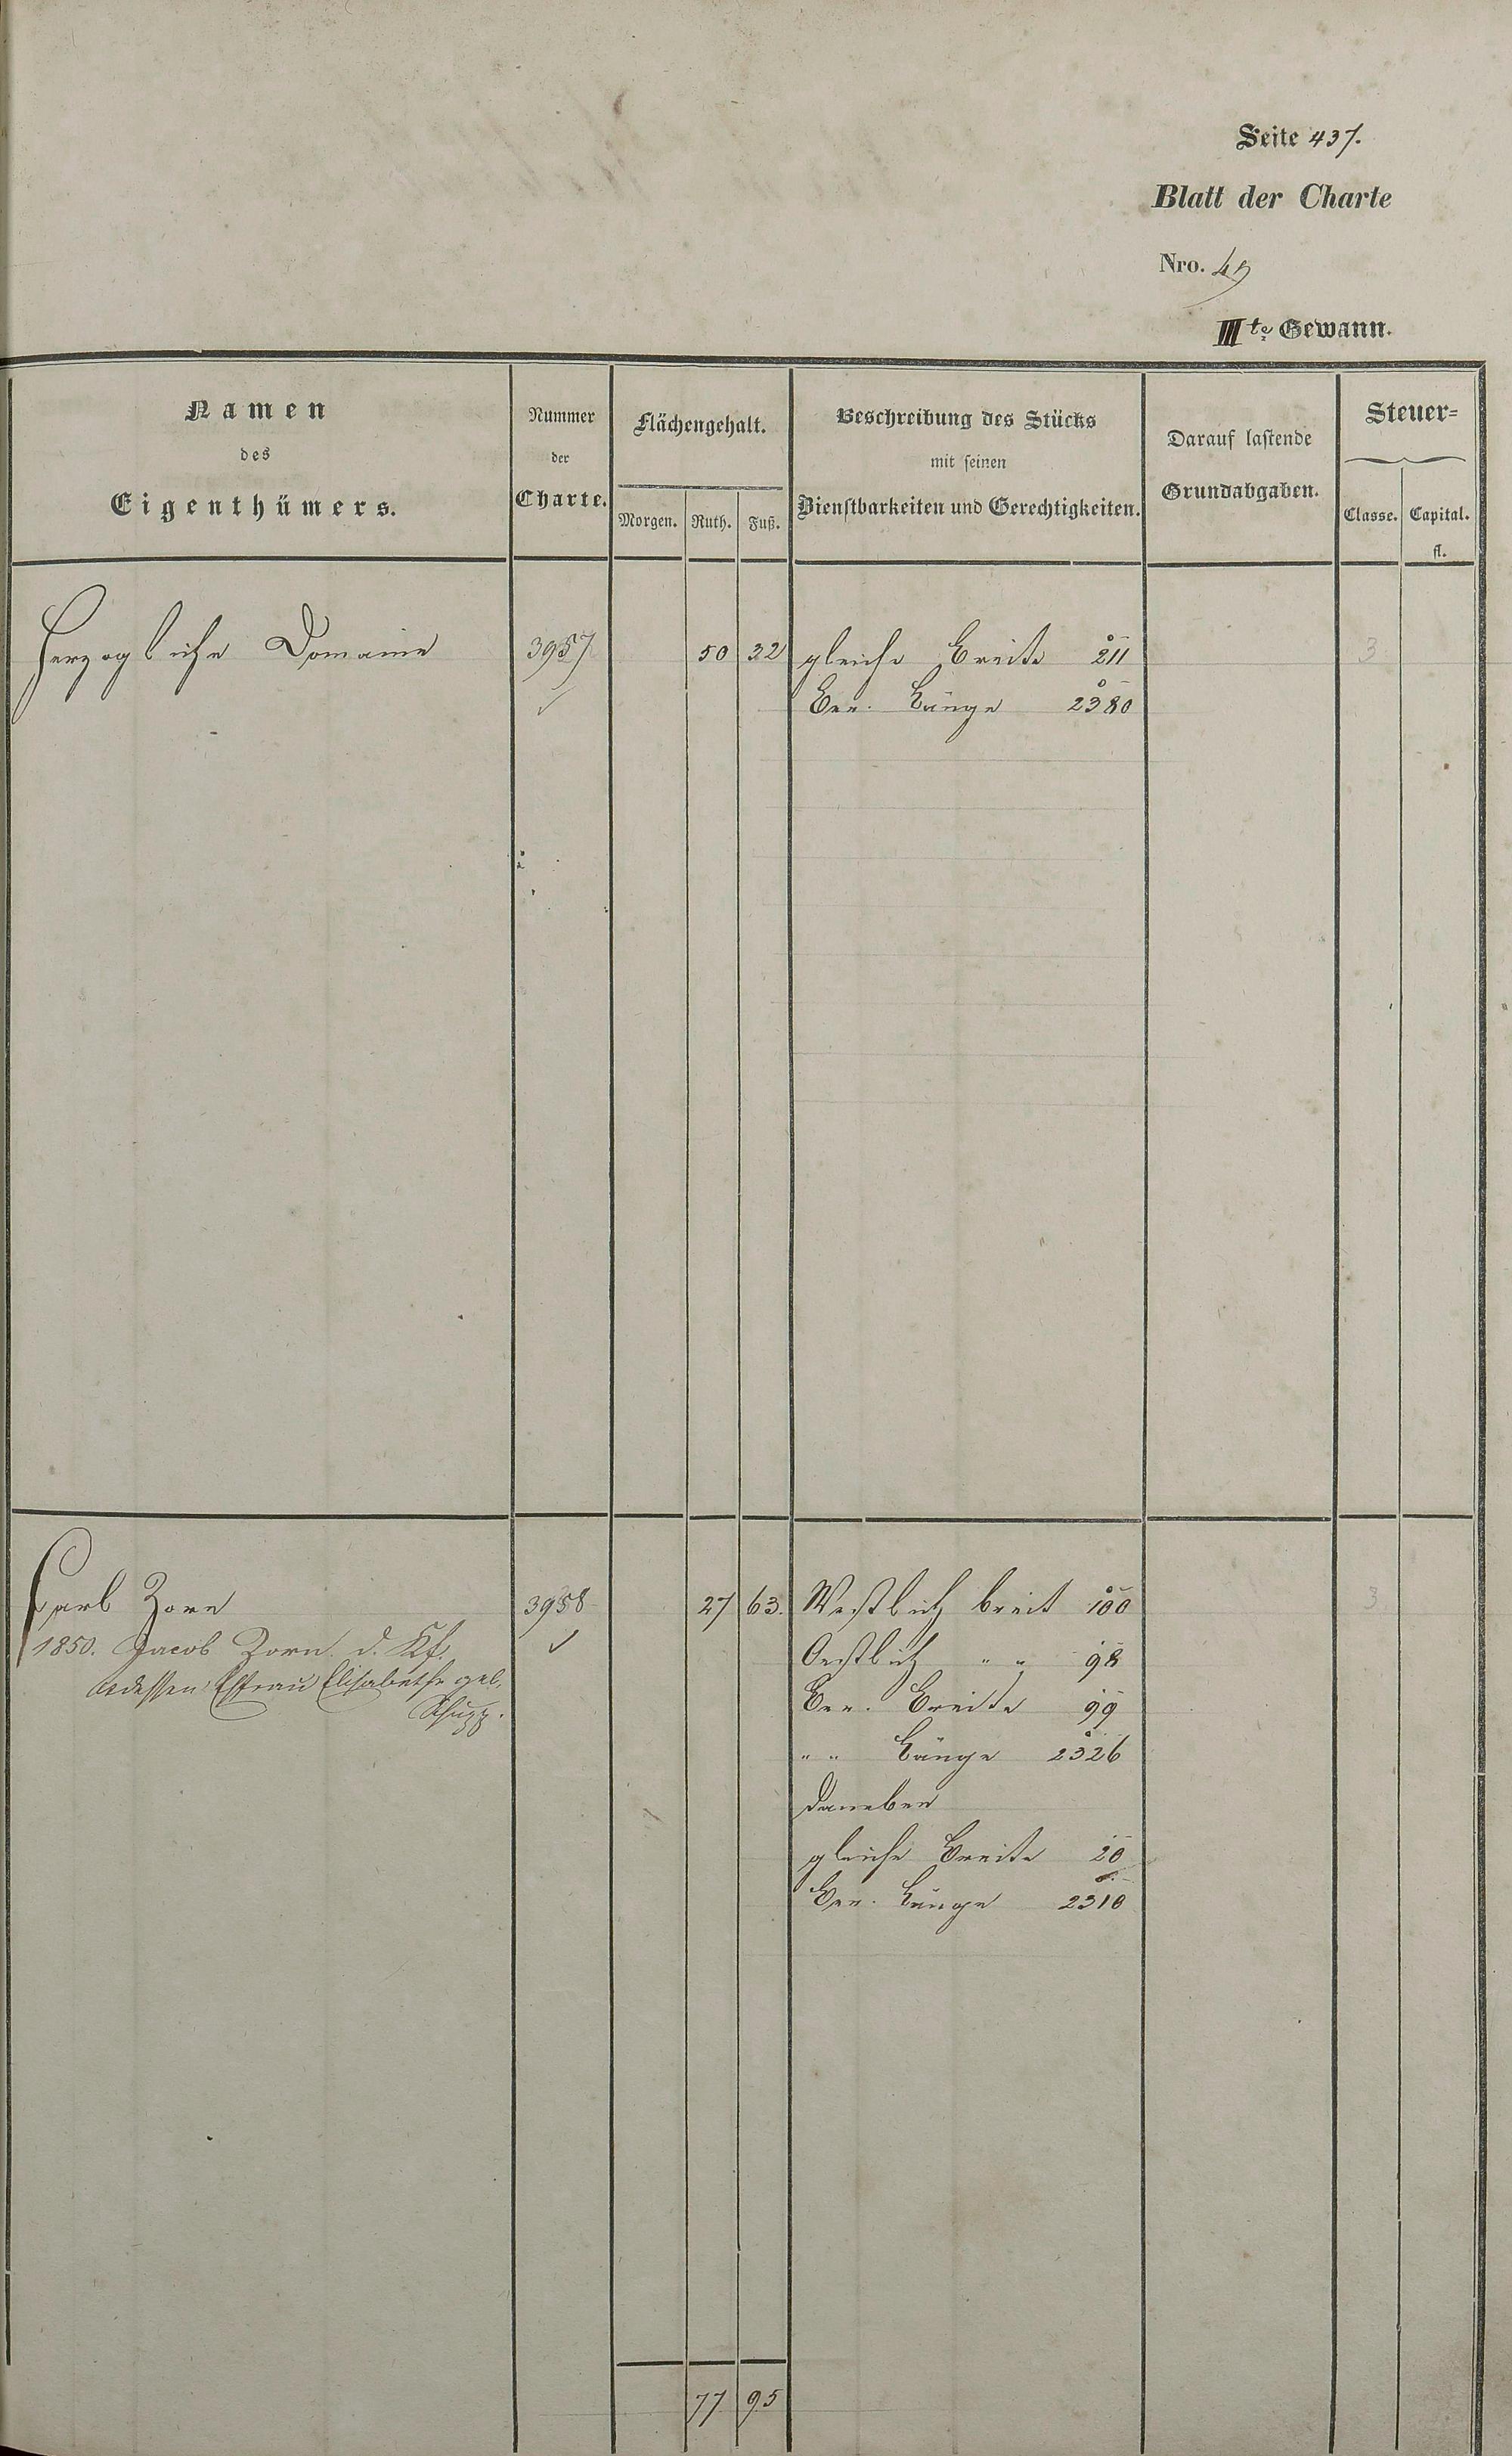 Seite 437.
Blatt der Charte
Nro. 49
IIIte Gewann.
Namen des Eigenthümers.
Nummer der Charte.
Flächengehalt.
Morgen. Ruth. Fuß.
Beschreibung des Stücks mit seinen Dienstbarkeiten und Gerechtigkeiten.
Darauf lastende Grundabgaben.
Steuer=
Classe. Capital.
fl.
Herzogliche Domaine 3957 50 32 gleiche Breite 211 3
Ber. Länge 2380
Carl Zorn 3958 27 63. Westlich breit 100 3
1850. Jacob Zorn d. Kf. Oestlich " " 98
u dessen Ehfrau Elisabethe geb. Ber. Breite 99
" " Länge 2326
daneben
gleiche Breite 20
Ber. Länge 2310
77 95